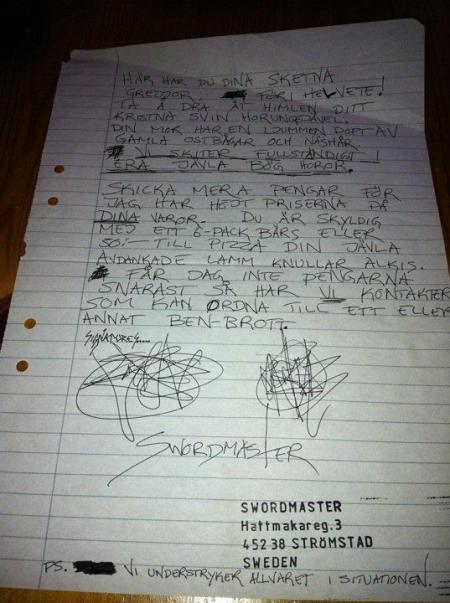 HÄR HAR DU DINA SKETNA
GREJJOR FÖR I HELVETE!
TA Å DRA ÅT HIMLEN DITT
KRÖSTNA SVIN HORUNGEJÄVEL.
DIN MOR HAR EN LJUMMEN DOFT AV
GAMLA OSTBÅGAR OCH NÄSHÅR.
VI SKITER FULLSTÄNDIGT!
ERA JÄVLA BÖG HOROR.
SKICKA MERA PENGAR FÖR
JAG HAR HÖJT PRISERNA PÅ
DINA VAROR. DU ÄR SKYLDIG
MEJ ETT 6-PACK BÄRS ELLER
50:- TILL PIZZA DIN JÄVLA
AVDANKADE LAMM KNULLAR ALKIS.
FÅR JAG INTE PENGARNA
SNARAST SÅ HAR VI KONTAKTER
SOM KAN ORDNA TILL ETT ELLER
ANNAT BEN-BROTT.
SWORDMASTER
SWORDMASTER
Hattmakareg.3
452 38 STRÖMSTAD
SWEDEN
PS. VI UNDERSTRYKER ALLVARET I SITUATIONEN.